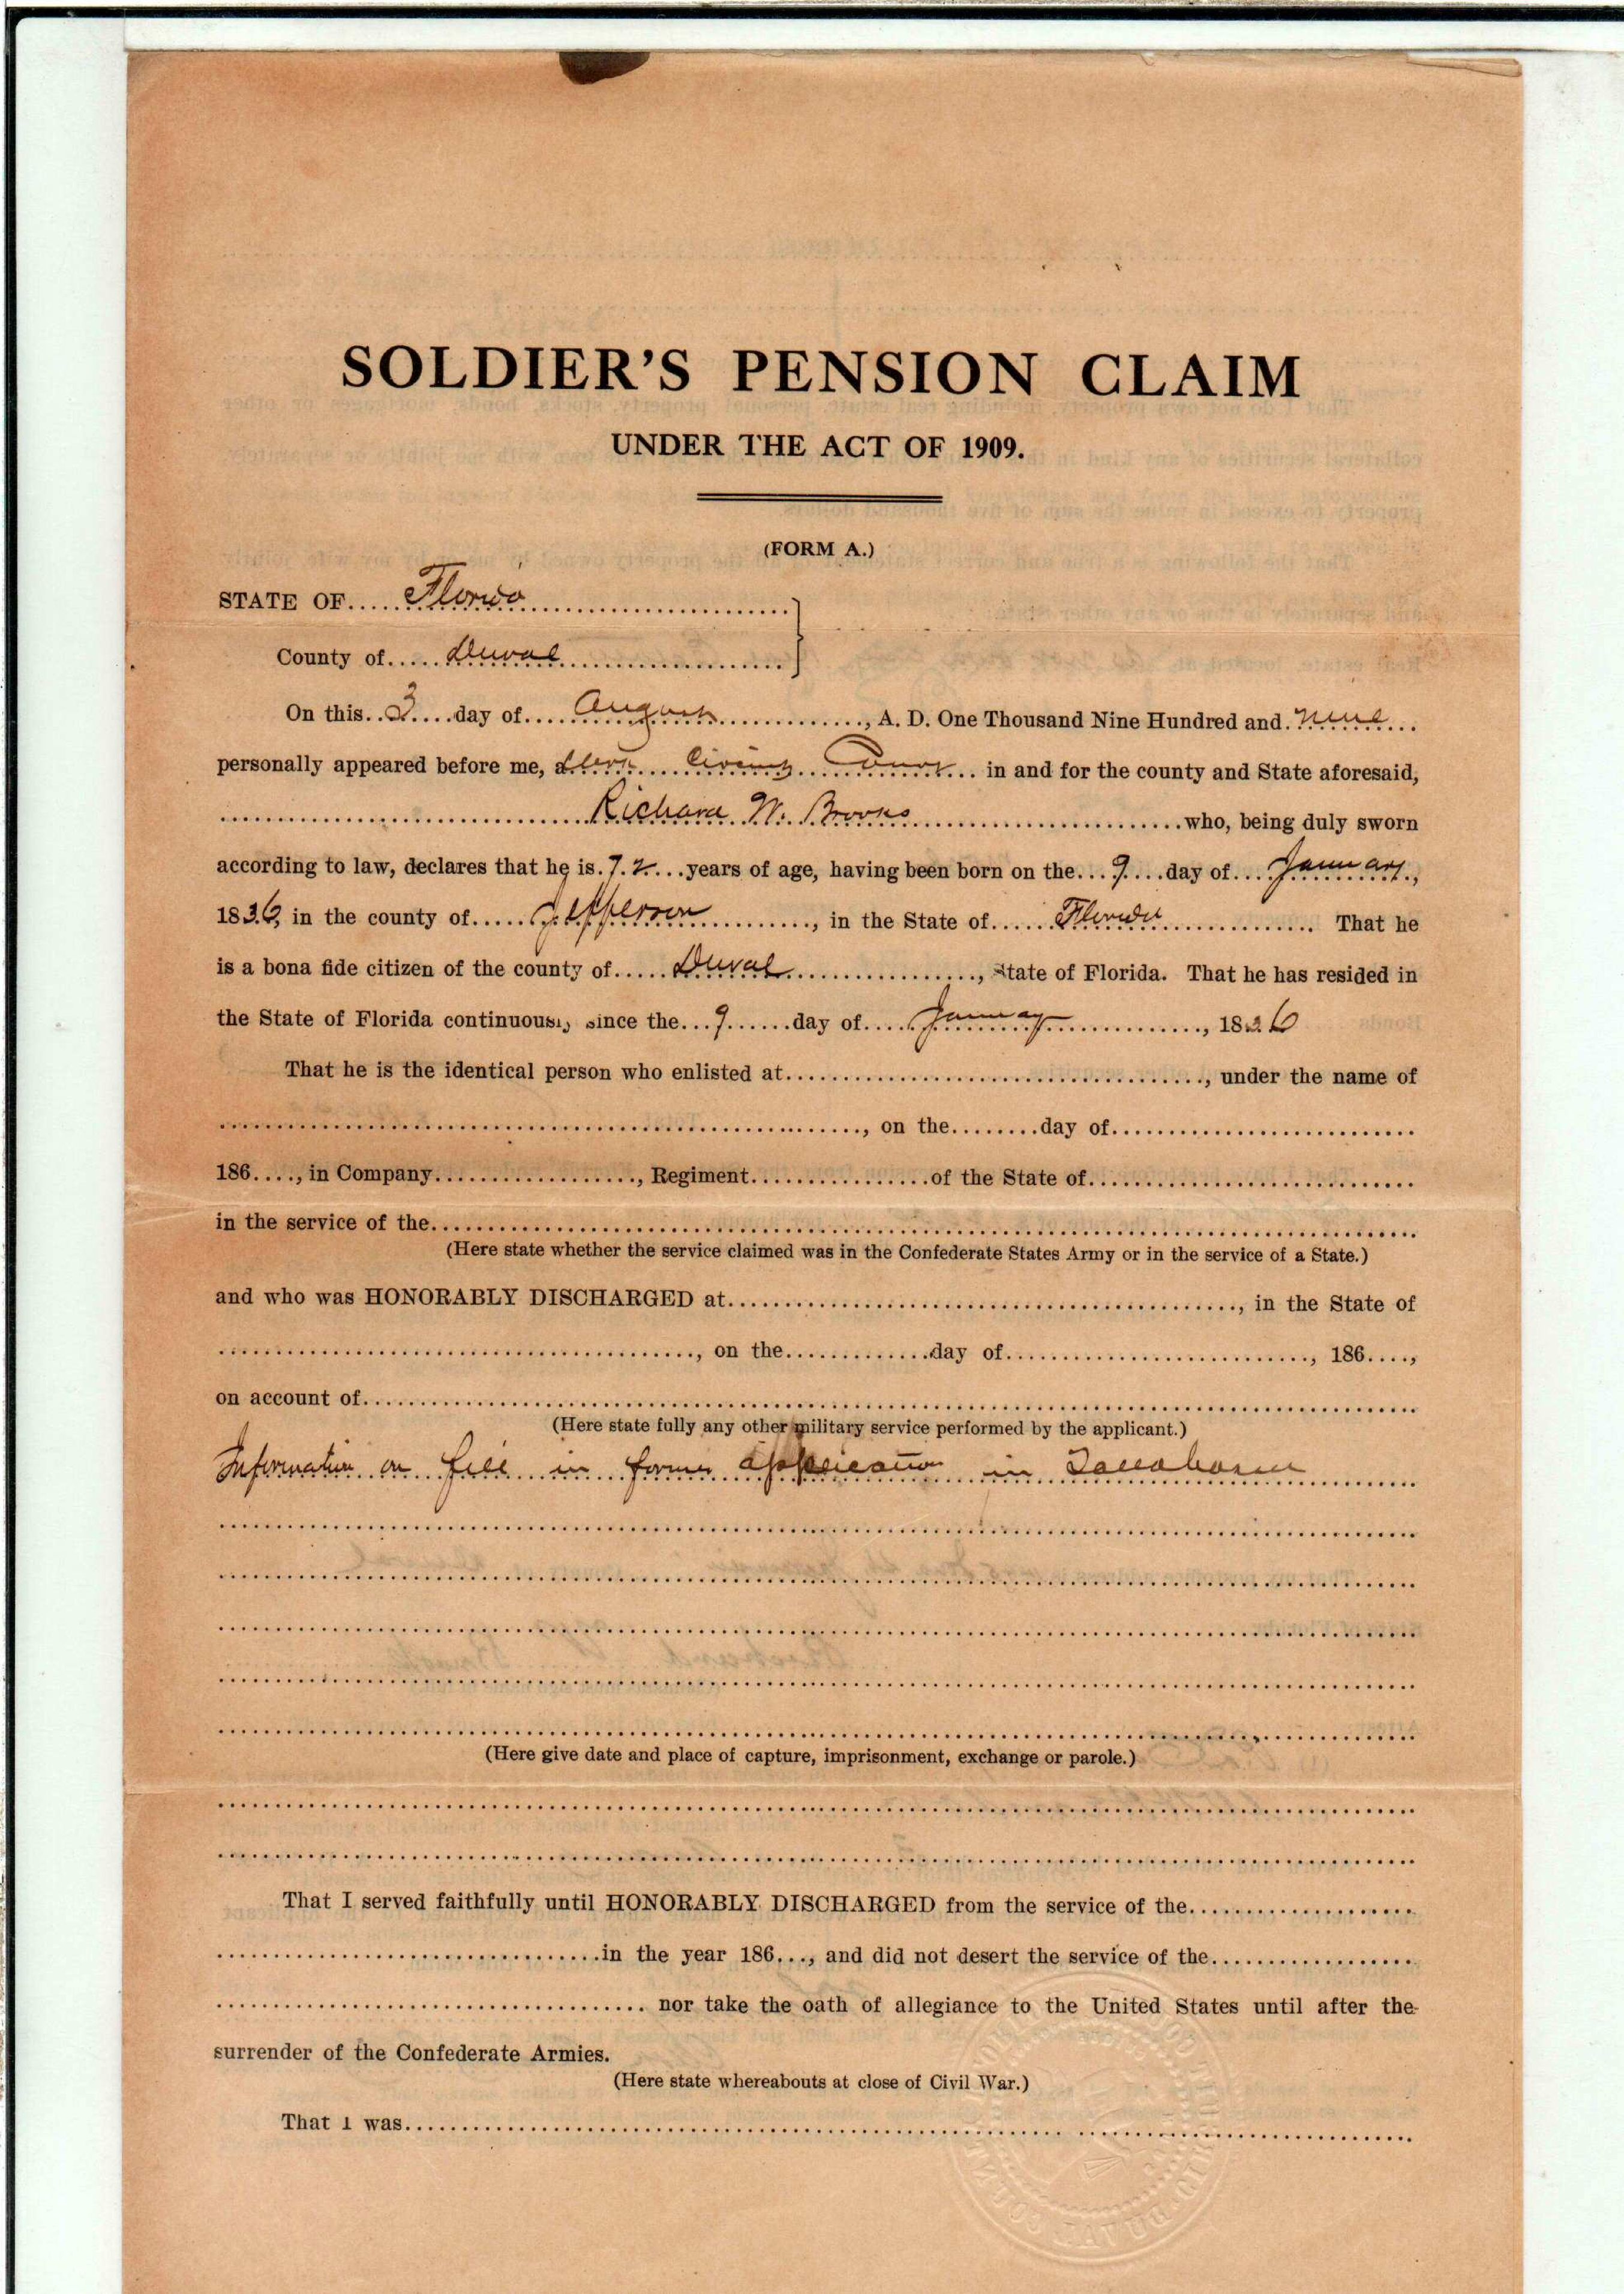 SOLDIER'S PENSION CLAIM
UNDER THE ACT OF 1909.
(FORM A.)
STATE OF..... Florida
County of..... Duval
On this..3....day of.... August ............, A. D. One Thousand Nine Hundred and. nine...
personally appeared before me, a Clerk Circuit Court ... in and for the county and State aforesaid,
Richard W. Brooks ..... who, being duly sworn
according to law, declares that he is. 72...years of age, having been born on the...9....day of.... January.,
1836, in the county of..... Jefferson ........, in the State of...... Florida ........ That he
is a bona fide citizen of the county of..... Duval ........, State of Florida. That he has resided in
the State of Florida continuously since the...9......day of.... January ........, 1836
That he is the identical person who enlisted at........, under the name of
........, on the........day of........
186...., in Company........, Regiment........of the State of........
in the service of the........
(Here state whether the service claimed was in the Confederate States Army or in the service of a State.)
and who was HONORABLY DISCHARGED at........, in the State of
........, on the........day of........, 186....,
on account of........
(Here state fully any other military service performed by the applicant.)
Information on file in former application in Tallahassee
(Here give date and place of capture, imprisonment, exchange or parole.)
That I served faithfully until HONORABLY DISCHARGED from the service of the........
........in the year 186..., and did not desert the service of the........
........ nor take the oath of allegiance to the United States until after the
surrender of the Confederate Armies.
(Here state whereabouts at close of Civil War.)
That I was........